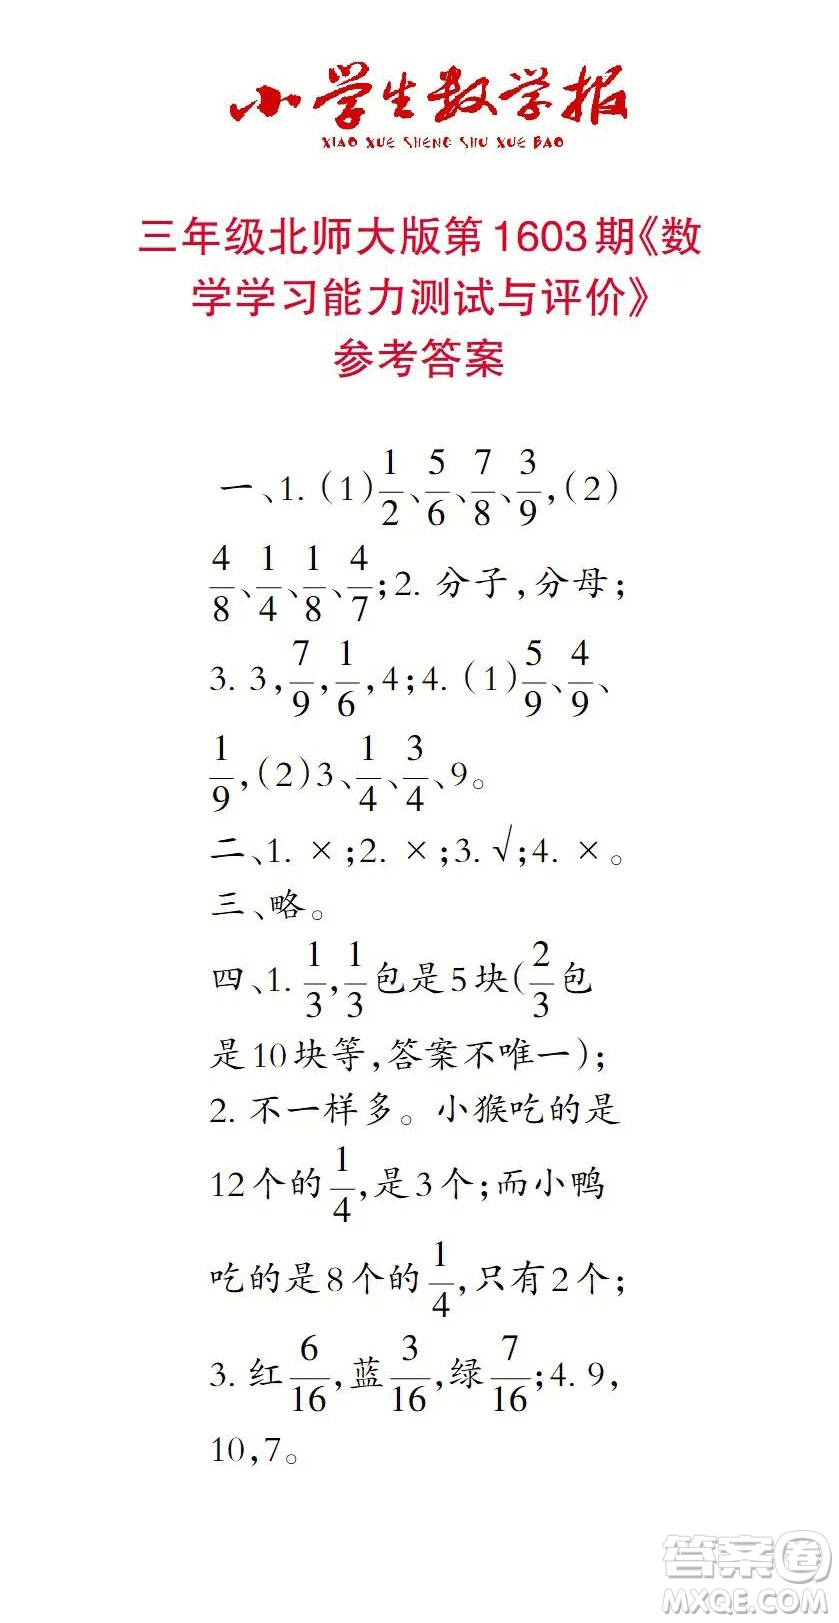 小学生数学报
XIAO XUE SHENG SHU XUE BAO
三年级北师大版第1603期《数
学学习能力测试与评价》
参考答案
一、1. (1)1/2、5/6、7/8、3/9,(2)
4/8、1/4、1/8、4/7;2. 分子,分母;
3. 3,7/9,1/6,4;4. (1)5/9、4/9、
1/9,(2)3、1/4、3/4、9。
二、1. ×;2. ×;3. √;4. ×。
三、略。
四、1. 1/3,1/3包是5块(2/3包
是10块等,答案不唯一);
2. 不一样多。小猴吃的是
12个的1/4,是3个;而小鸭
吃的是8个的1/4,只有2个;
3. 红6/16,蓝3/16,绿7/16;4. 9,
10,7。
答案圈
MXQE.COM